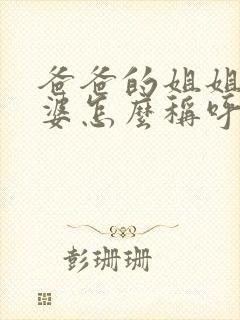 爸爸的姐姐
婆怎麼稱呼
彭珊珊